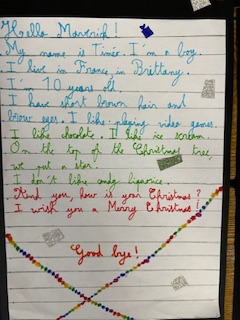 Hello Maverick!
My name is Timéo. I'm a boy.
I live in France in Brittany.
I'm 10 years old.
I have short brown hair and
brow eyes. I like playing video games.
I like chocolate. I like ice scream.
On the top of the Christmas tree,
we put a star.
I don't like candy liquorice.
And you, how is your Christmas?
I wish you a Merry Christmas!
Good bye!